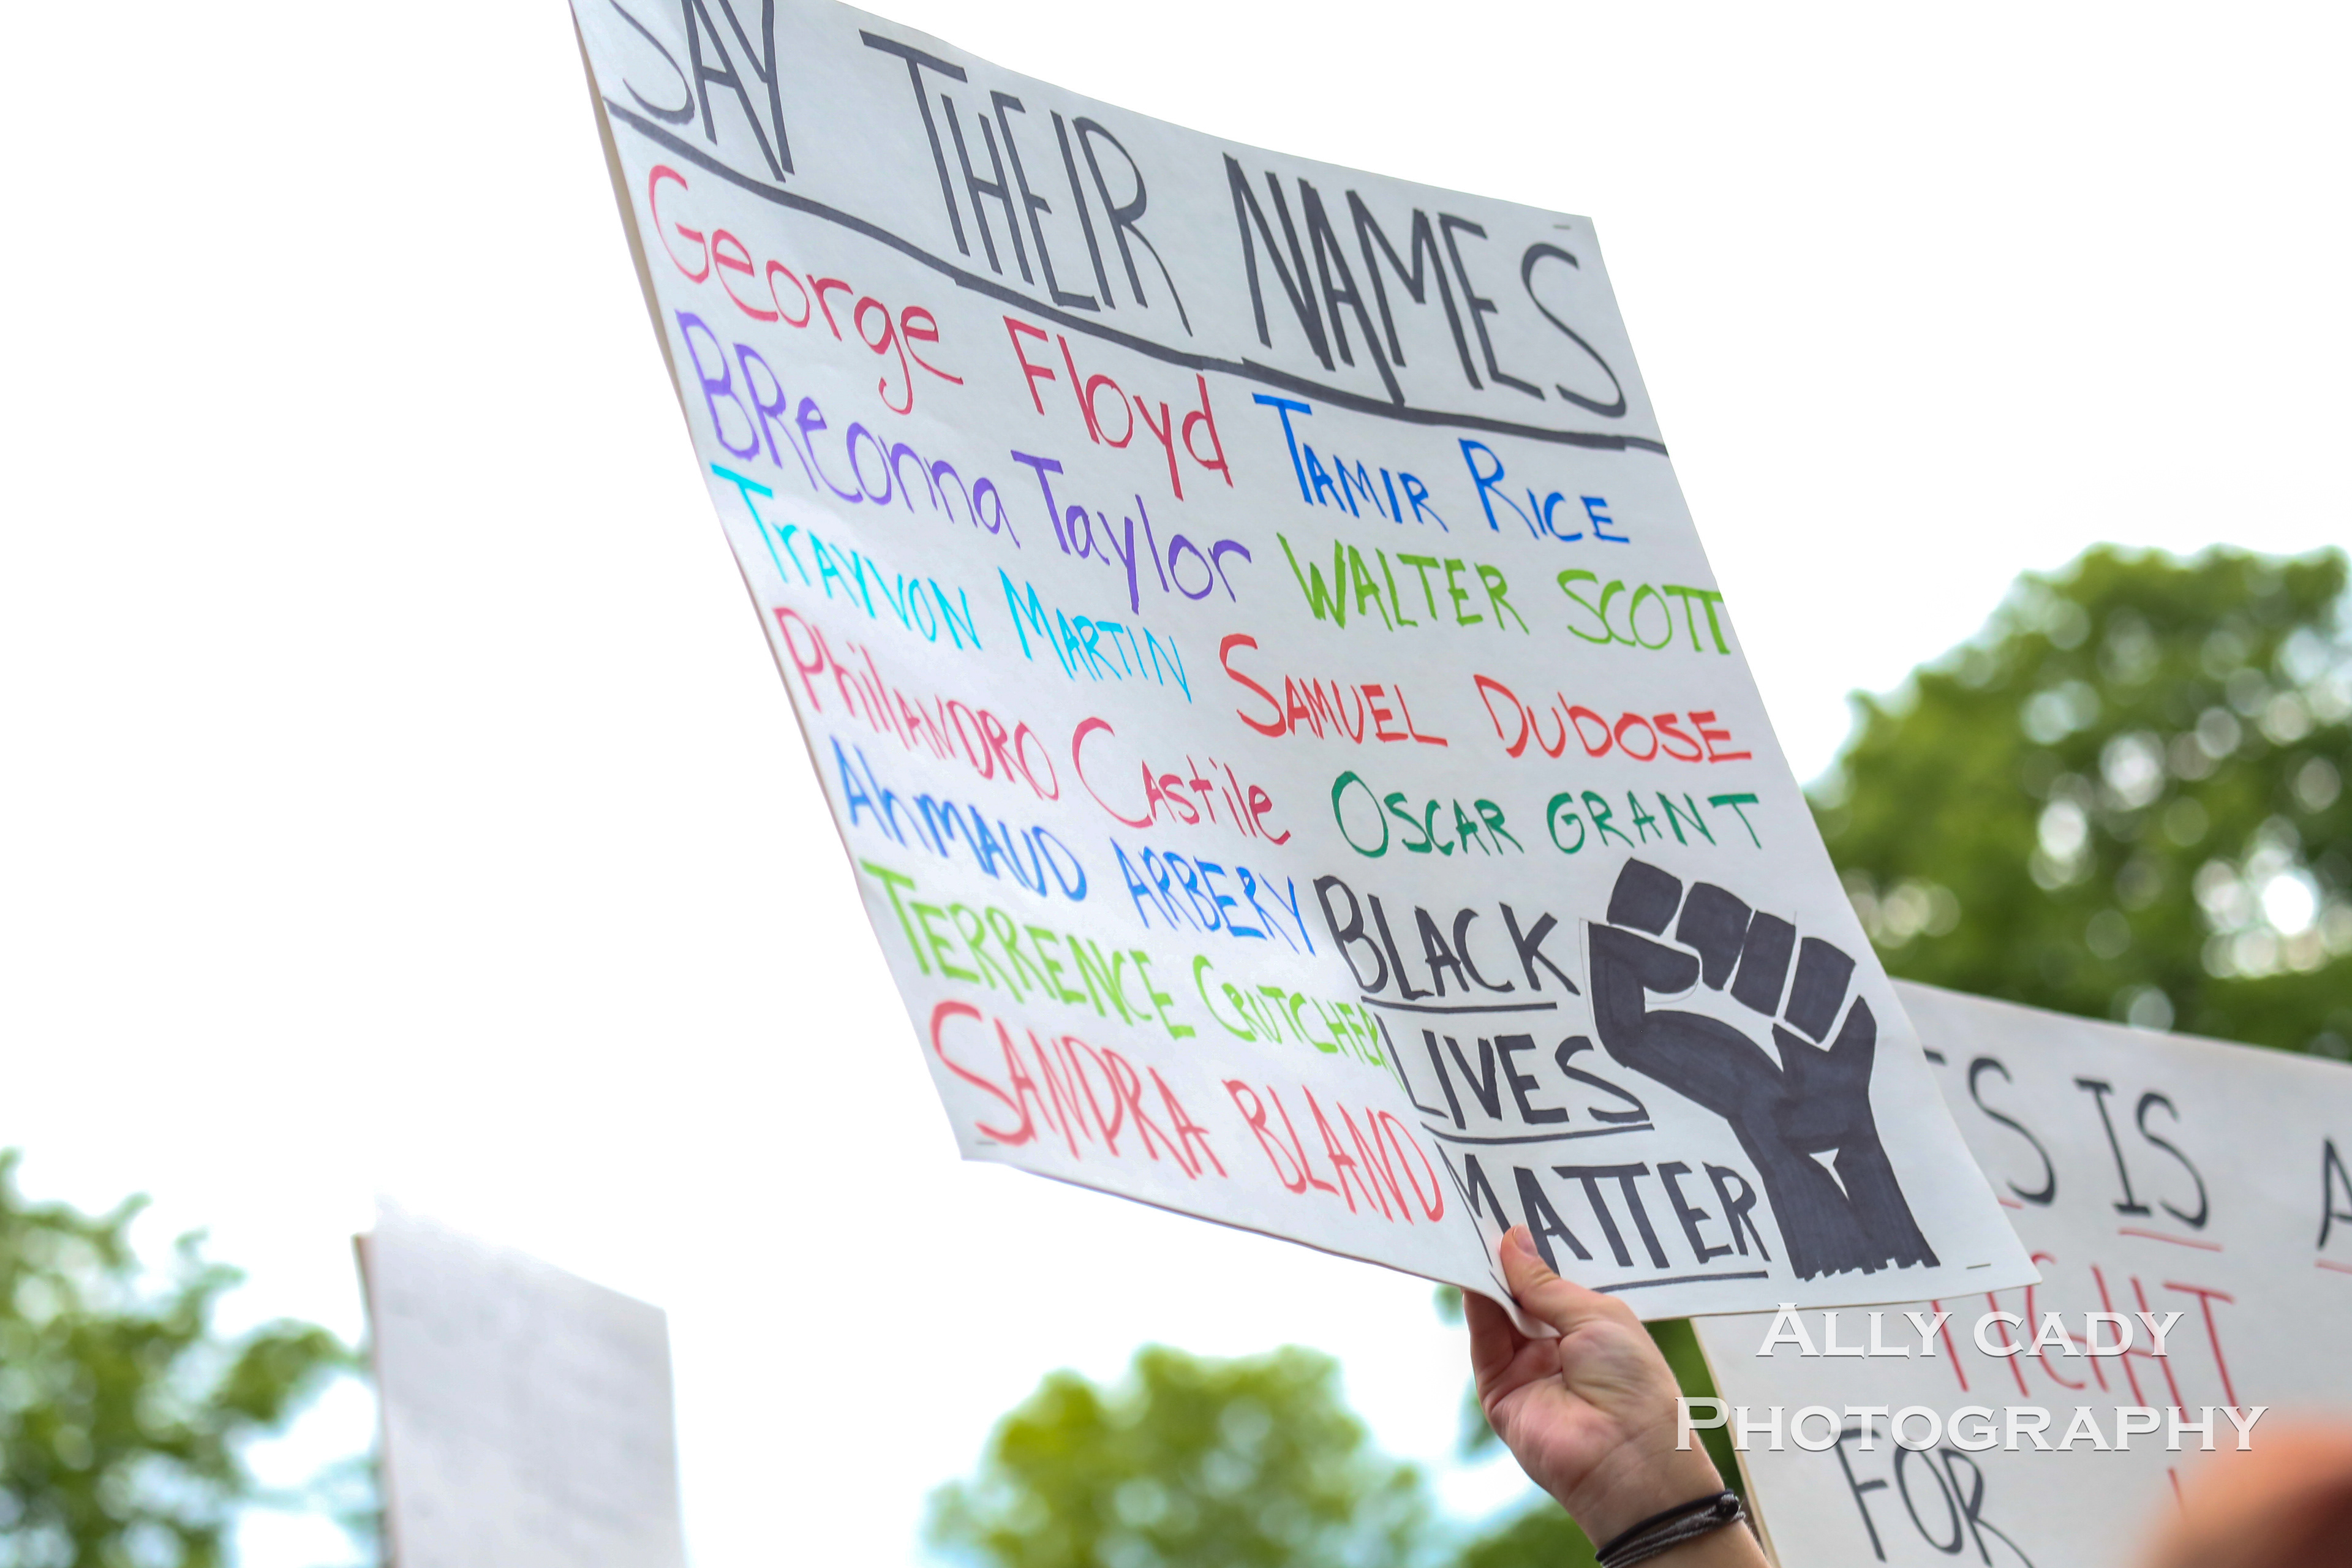 SAY THEIR NAMES
George Floyd
BReonna Taylor
TrAYVON MARTIN
PhilANDRO CAstile
AhMAUD ARBERY
TERRENCE CRUTCHER
SANDRA BLAND
TAMIR RICE
WALTER SCOTT
SAMUEL DUbOSE
OSCAR GRANT
BLACK
LIVES
MATTER
IS
FOR
ALLY CADY
PHOTOGRAPHY